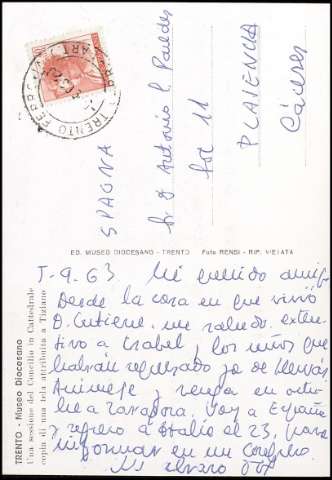 SPAGNA
Sr D Antonio L Paredes
11
PLASENCIA
Cáceres
TRENTO FERROVIA
ED. MUSEO DIOCESANO - TRENTO Foto RENSI - RIP. VIETATA
TRENTO - Museo Diocesano
Una sessione del Concilio in Cattedrale
copia di una tela attribuita a Tiziano
-9-63 Mi querido amigo
Desde la casa en que vivió
D. Gutierre, un saludo, exten-
sivo a Isabel y los niños que
habrán regresado ya de
Anímese y venga en octu-
bre a Zaragoza. Voy a España
y regreso a Italia el 23, para
en un Congreso.
Alvaro